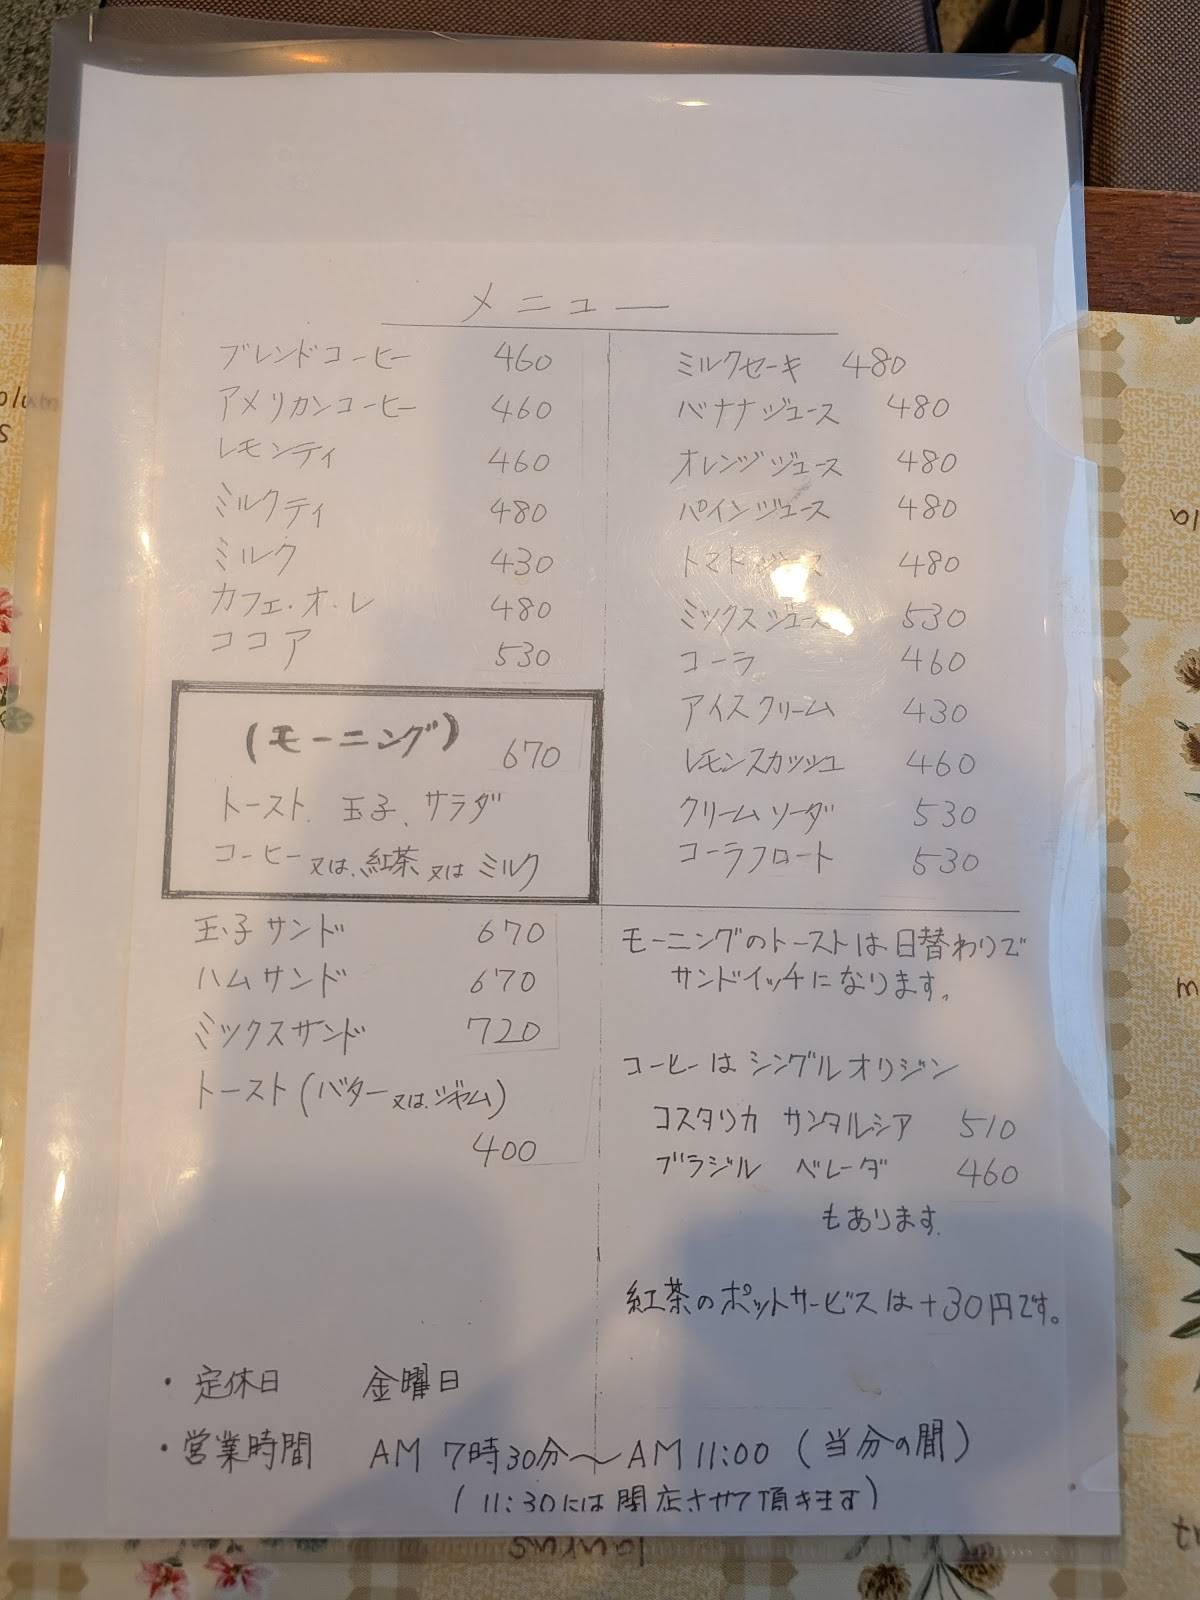 メニュー
ブレンドコーヒー 460
アメリカンコーヒー 460
レモンティ 460
ミルクティ 480
ミルク 430
カフェ・オ・レ 480
ココア 530
(モーニング) 670
トースト、玉子、サラダ
コーヒー又は、紅茶又はミルク
玉子サンド 670
ハムサンド 670
ミックスサンド 720
トースト(バター又は、ジャム)
400
ミルクセーキ 480
バナナジュース 480
オレンジジュース 480
パインジュース 480
トマトジュース 480
ミックスジュース 530
コーラ 460
アイスクリーム 430
レモンスカッシュ 460
クリームソーダ 530
コーラフロート 530
モーニングのトーストは日替わりで
サンドイッチになります。
コーヒーはシングルオリジン
コスタリカ サンタルシア 510
ブラジル ベレーダ 460
もあります.
紅茶のポットサービスは+30円です。
・定休日 金曜日
・営業時間 AM 7時30分〜AM 11:00 (当分の間)
(11:30には閉店させて頂きます)
laurus